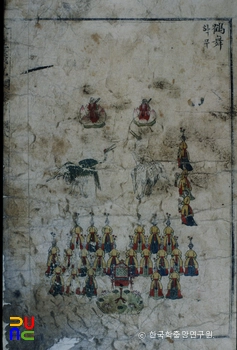 鶴舞
학무
PUAC
© 한국학중앙연구원